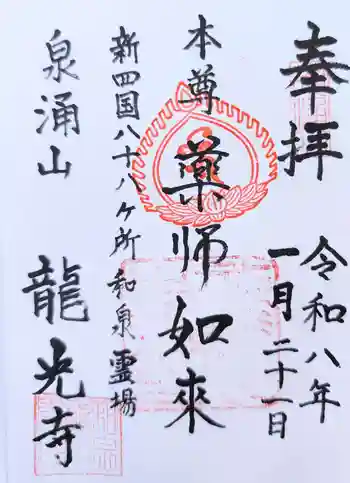 奉拝
令和八年
一月二十一日
本尊
薬师如來
新四国八十八ヶ所和泉霊場
泉涌山
龍光寺